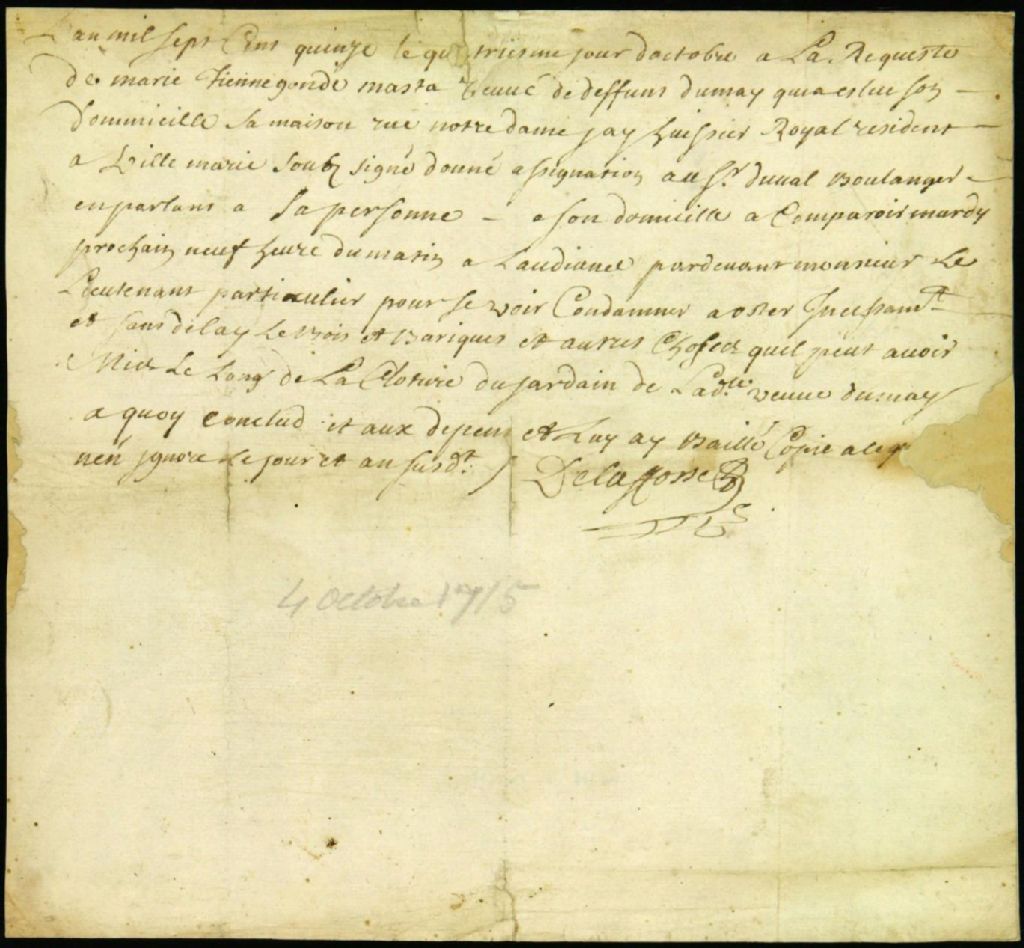 L'an mil sept Cens quinze le quatriesme jour doctobre a La Requeste
de marie masta veuve de deffunt dumay qui a eslue son
domicille sa maison rue nostre dame jay huissier Royal resident
a Ville marie soubz signé donné assignation au Sr. duval Boulanger
en parlant a sa personne a son domicille a Comparoir mardy
prochain neuf heure du matin a Laudiance pardevant monsieur Le
Lieutenant particulier pour se voir Condamner a oster Incessamt.
et sans delay Le Bois et Bariques et autres Choses quil peut avoir
Mis Le Long de La Closture du jardain de Ladte. veuve dumay
a quoy Conclud et aux depens et Luy ay Baillé Copie a ce q
nen jgnore Le jour et an susdt.
4 Octobre 1715